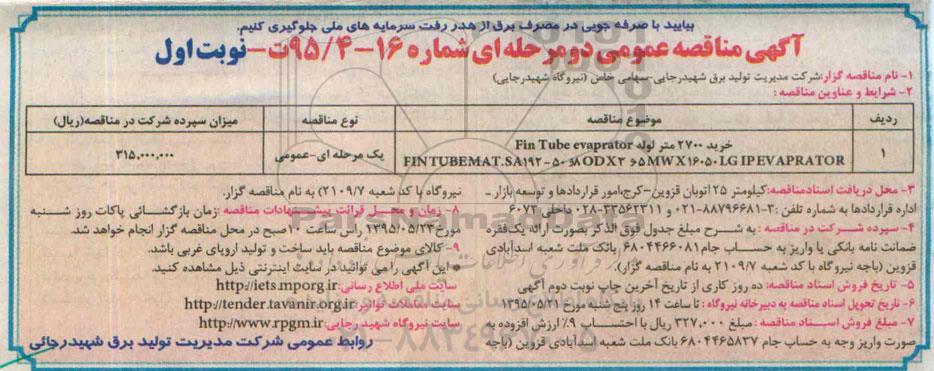 بیایید با صرفه جویی در مصرف برق از هدر رفت سرمایه های ملی جلوگیری کنیم.
آگهی مناقصه عمومی دومرحله ای شماره ۱۶-۹۵/۴ت-نوبت اول
۱- نام مناقصه گزار:شرکت مدیریت تولید برق شهیدرجایی-سهامی خاص (نیروگاه شهیدرجایی)
۲- شرایط و عناوین مناقصه :
ردیف موضوع مناقصه نوع مناقصه میزان سپرده شرکت در مناقصه(ریال)
۱ خرید ۲۷۰۰ متر لوله Fin Tube evaprator یک مرحله ای-عمومی ۳۱۵,۰۰۰,۰۰۰
FINTUBEMAT.SA۱۹۲-۵۰و۸ODX۳و۶۵MWX۱۶۰۵۰LG IPEVAPRATOR
۳- محل دریافت اسنادمناقصه:کیلومتر ۲۵ اتوبان قزوین-کرج،امور قراردادها و توسعه بازار ـ
اداره قراردادها به شماره تلفن :۳-۸۸۷۹۶۶۸۱-۰۲۱ و ۳۳۵۶۲۳۱۱-۰۲۸ داخلی ۶۰۷۳
۴- سپرده شرکت در مناقصه : به شرح مبلغ جدول فوق الذکر بصورت ارائه یک فقره
ضمانت نامه بانکی یا واریز به حساب جام ۶۸۰۴۴۶۶۰۸۱ بانک ملت شعبه اسدآبادی
قزوین (باجه نیروگاه با کد شعبه ۲۱۰۹/۷ به نام مناقصه گزار).
۵- تاریخ فروش اسناد مناقصه: ده روز کاری از تاریخ آخرین چاپ نوبت دوم آگهی
۶- تاریخ تحویل اسناد مناقصه به دبیرخانه نیروگاه : تا ساعت ۱۴ روز پنج شنبه مورخ ۱۳۹۵/۰۵/۲۱
۷- مبلغ فروش اسناد مناقصه : مبلغ ۳۲۷,۰۰۰ ریال با احتساب ۹٪ ارزش افزوده به
صورت واریز وجه به حساب جام ۶۸۰۴۴۶۵۸۳۷ بانک ملت شعبه اسدآبادی قزوین (باجه
نیروگاه با کد شعبه ۲۱۰۹/۷) به نام مناقصه گزار.
۸- زمان و محل قرائت پیشنهادات مناقصه :زمان بازگشائی پاکات روز شنبه
مورخ ۱۳۹۵/۰۵/۲۳ راس ساعت ۱۰ صبح در محل مناقصه گزار انجام خواهد شد.
۹- کالای موضوع مناقصه باید ساخت و تولید اروپای غربی باشد.
این آگهی را می توانید در سایت اینترنتی ذیل مشاهده کنید.
سایت ملی اطلاع رسانی:http://iets.mporg.ir
سایت معاملات توانیر:http://tender.tavanir.org.ir
سایت نیروگاه شهید رجایی:http://www.rpgm.ir
روابط عمومی شرکت مدیریت تولید برق شهیدرجائی